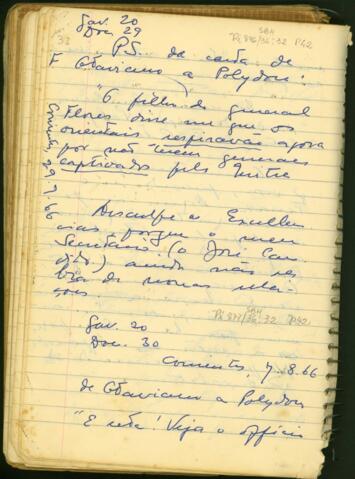 Gav. 20
Doc. 29
SBH
Pi 876/36:32 P42
33
P.S. da carta de
F Otaviano a Polydoro:
"O filho do general
Flores disse me que os
orientais respiravão agora
por não terem generaes
captivados pelo Mitre
Corrientes, 29.7.66
Desculpe a Excellen
cias, porque o meu
Secretario (o José Can
dido) ainda não
de novas
SBH
Pi 877/36:32 P42
Gav. 20
Doc. 30
Corrientes, 7.8.66
de Otaviano a Polydoro
"E esta! Veja o officio